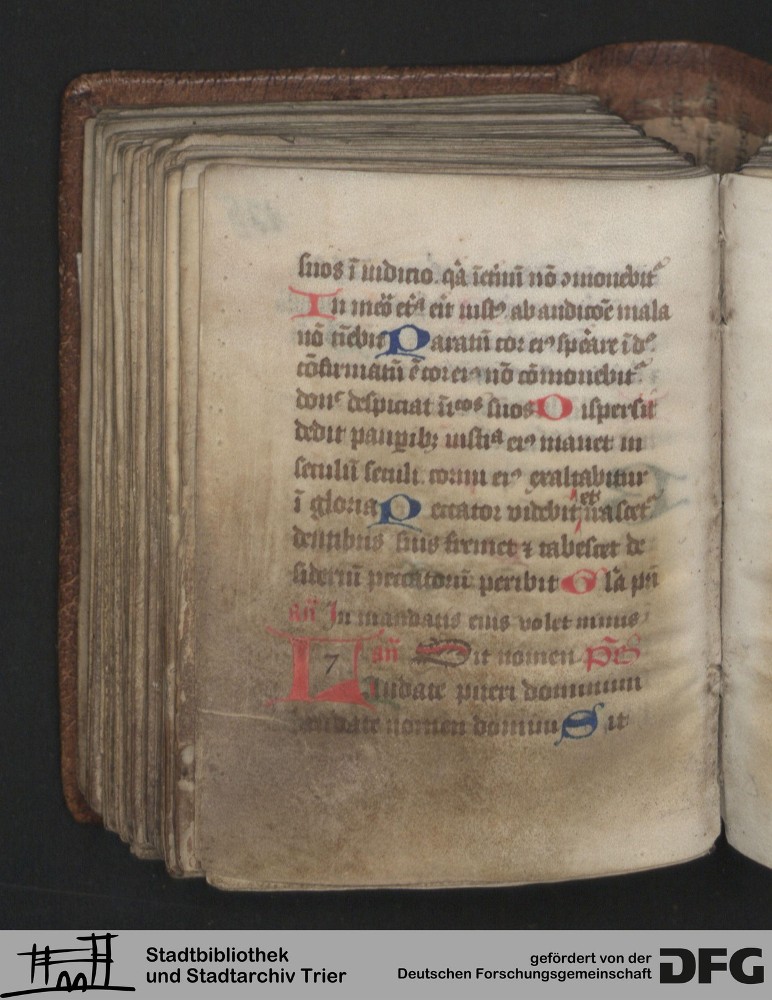 suos ī iudicio. qͣ ī et̄nū nō ↄmouebitᷣ
In meō et̓ᵃ erit iustꝰ ab auditōe mala
nō tīebit Paratū cor eiꝰ sꝑare ī dō
cōfirmatū ē cor eiꝰ nō cōmouebitᷣ
donᷣ despiciat īīcos suos Dispersit
dedit pauꝑibꝫ iustiᵃ eiꝰ manet in
seculū seculi. cornu eiꝰ exaltabitur
ī gloria Peccator videbit et irascetᷣ
dentibus suis fremet ⁊ tabescet de
sideriū peccatorū peribit Glā pri
an̄ In mandatis eius volet nimis
7 an̄ Sit nomen ps̄
Laudate pueri dominum
laudate nomen domini Sit
Stadtbibliothek
und Stadtarchiv Trier
gefördert von der
Deutschen Forschungsgemeinschaft
DFG